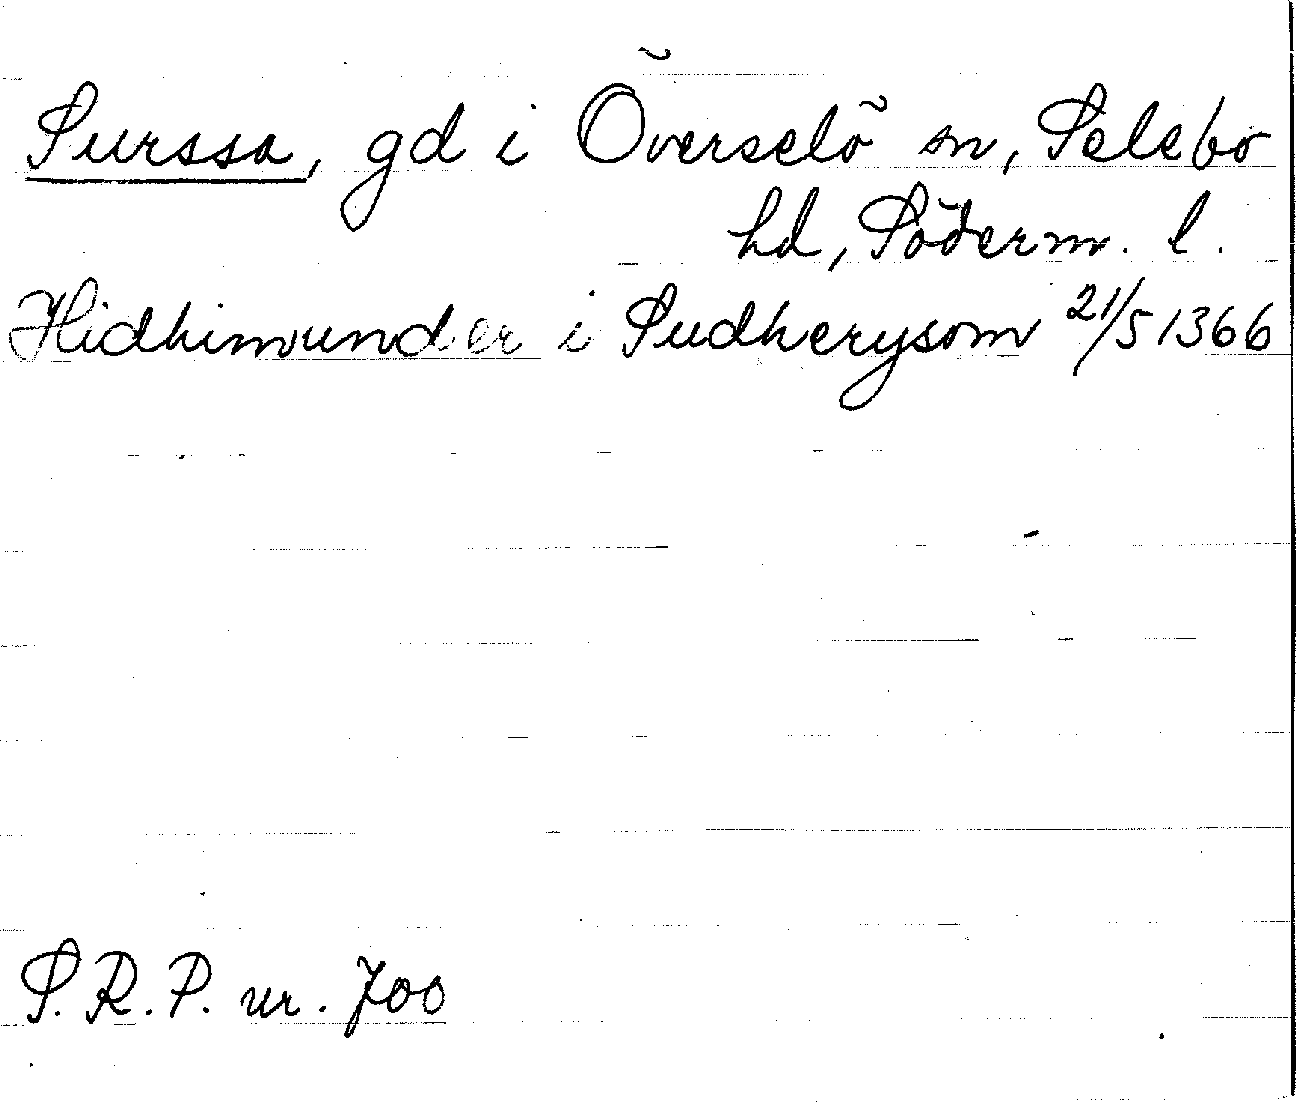 Surssa, gd i Överselö sn, Selebo
hd, Söderm. l.
Hidhimunder i Sudherysom 21/5 1366
S.R.P. nr. 700